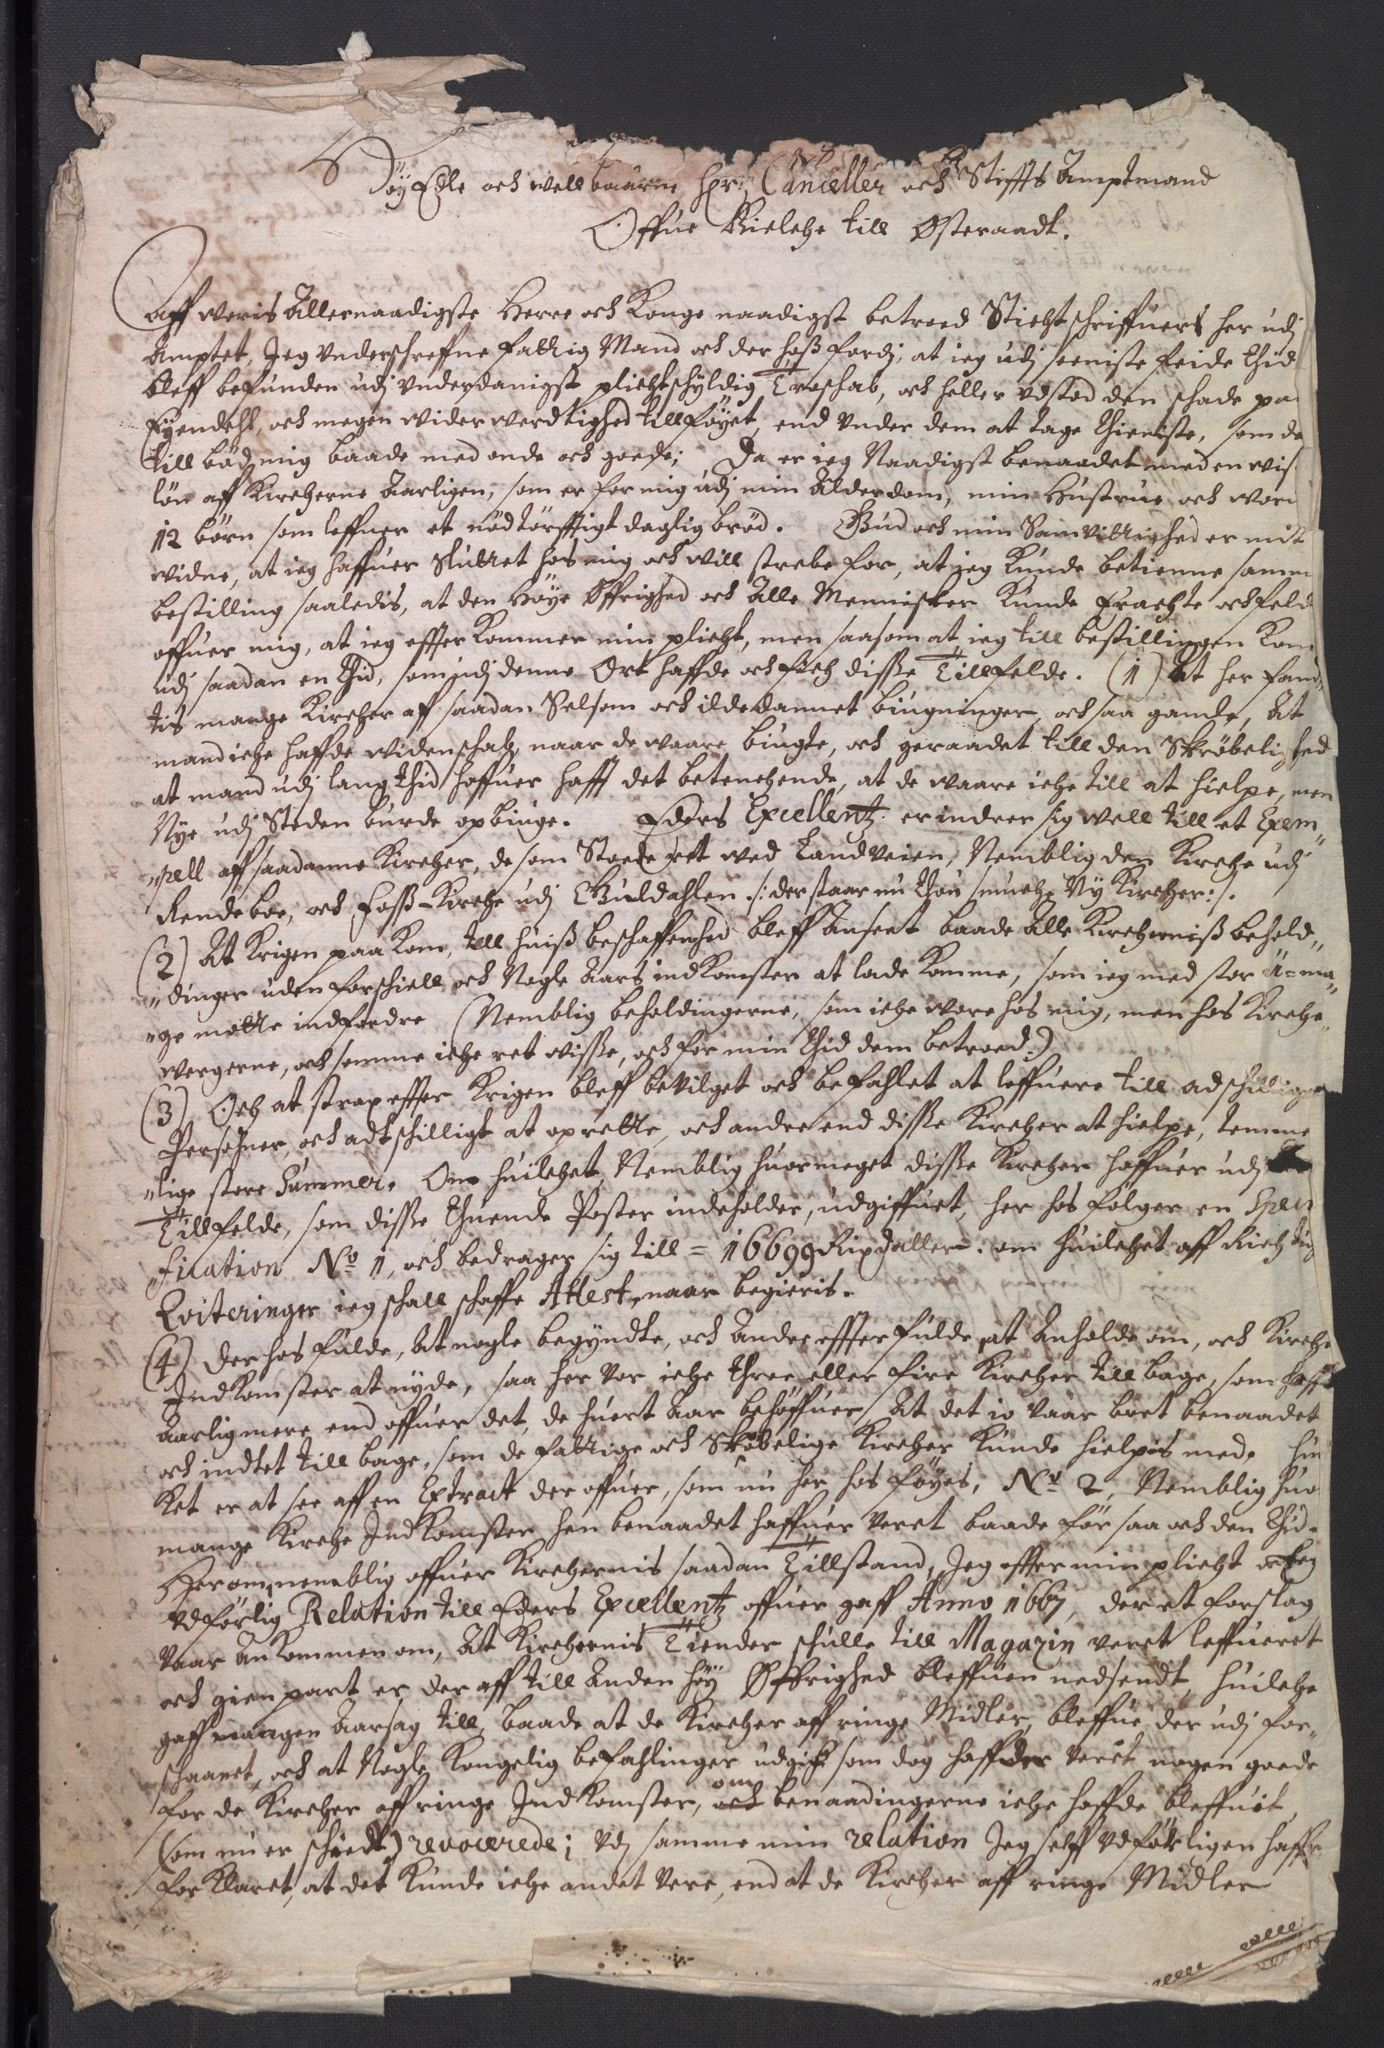 Höy Edle och wellbaarne Hr: Cantzeller och Stiffts Amptmand
Offue Bielche till Østeraadt.
Aff woris Allernaadigste Herre och Konge naadigst betroed Stichtschriffuers her udj
Amptet, Jeg Vnderschrefne fattig Mand och der hoß fordj, at ieg udj seeniste feide thid
bleff befunden udj vnderdanigst plichtschyldig Troschab, och heller udstod den schade paa
Eyendehl, och megen widerwerdtighed tillføyet, end under dem at tage thieniste, som de
till bød mig baade med onde och goede; Da er ieg Naadigst benaadet med en wis
lön aff Kircherne Aarligen, som er for mig udj min Alderdom, min Hustrue och wore
12 börn som leffuer et nödtørfftigt daglig bröd. Gud och min Samvittighed er mit
widne, at ieg haffuer sluttet hos mig och will strebe for, at ieg kunde betienne samme
bestilling saaledis, at den Høye Øffrighed och Alle Mennisker kunde Erachte och felde
offuer mig, at ieg effterkommer min plicht, men saasom at ieg till bestillingen kom
udj saadan en thid, som udj denne Ort haffde och fich disse Tillfelde. (1) At her fand„
tis mange Kircher af saadan Selsom och ildedannet biugninger, och saa gamle, At
mand iche haffde widenschab, naar de waare biugte, och geraadet till den Skröbelighed
at mand udj lang thid haffuer hafft det betenchende, at de waare iche till at hielpe, men
Nye udj Steden burde opbiuge. Eders Excellentz erindrer sig well till et Exem„
„pell aff saadanne Kircher, de som Stoede ret wed Landveien, Nemblig den Kirche udj
Rendeboe, och Foss-Kirche udj Guldahlen /: der staar nu thou smuche Ny Kircher :/.
(2) At Krigen paa kom, till huis beschaffenhed bleff Anseet baade Alle Kirchernis behold„
„dinger uden forschiell och Nogle Aars indkomster at lade komme, som ieg med stor U=ma„
„ge motte indfordre (Nemblig beholdingerne, som iche wore hos mig, men hos Kirche„
wergerne, och somme iche ret wisse, och for min thid dem betroed.)
(3) Och at strax effter Krigen bleff beuilget och befahlet at leffuere till adschillige
Persohner, och adtschilligt at oprette, och andre end disse Kircher at hielpe, temme
„lige store Summer. Om huilchet, Nemblig huormeget disse Kircher haffuer udj
Tillfelde, som disse thuende Poster indeholder, udgiffuet, her hos følger en Speci
„fication No 1, och bedrager sig till = 16699 Rixdaller. om huilchet aff Richtig
Qviteringer ieg schall schaffe Attest, naar begieris.
(4) Der hos fulde, At nogle begyndte, och Andre effterfulde at Anholde om, och Kirche
Indkomster at nyde, saa her var iche three eller fire Kircher till bage, som haffde
Aarlig mere end offuer det, de huert Aar behøffuer, At det io vaar bort benaadet
och indtet till bage, som de fattige och Skröbelige Kircher kunde hielpis med. Huil
ket er at see aff en Extract der offuer, som nu her hos føyes, No 2, Nemblig huor
mange Kirche Indkomster hen benaadet haffuer veret baade för saa och den thid.
Her om nemblig offuer Kirchernis saadan Tillstand, Jeg effter min plicht och
vdførlig Relation till Eders Excellentz offuer gaff Anno 1667, der et forslag
vaar Ankommen om, At Kirchernis Tiender schulle till Magazin veret leffueret
och gien part er der aff till Anden høy Øffrighed bleffuen nedsendt, huilche
gaff mangen Aarsag till, baade at de Kircher aff ringe Midler, bleffue der udj for„
schaanet, och at Nogle Kongelig befahlinger udgich som dog haffde veret nogen goede
for de Kircher aff ringe Indkomster, om benaadingerne iche haffde bleffuet
(som nu er scheedt) revocerede; Udj samme min relation Jeg self vdførligen haffr
forklaret, at det kunde iche andet vere, end at de Kircher aff ringe Midler